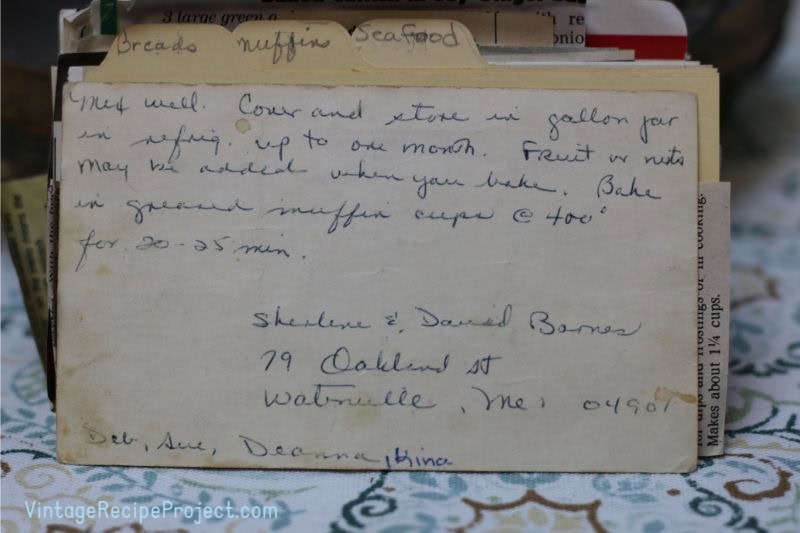 3 large green
with re
onio
Breads muffins Seafood
Mix well. Cover and store in gallon jar
in refrig. up to one month. Fruit or nuts
may be added when you bake. Bake
in greased muffin cups @ 400°
for 20-25 min.
Sherlene & David Barnes
79 Oakland St
Waterville, Me. 04901
Deb, Sue, Deanna, Kina
or dips and frostings or in cooking.
Makes about 1¼ cups.
VintageRecipeProject.com